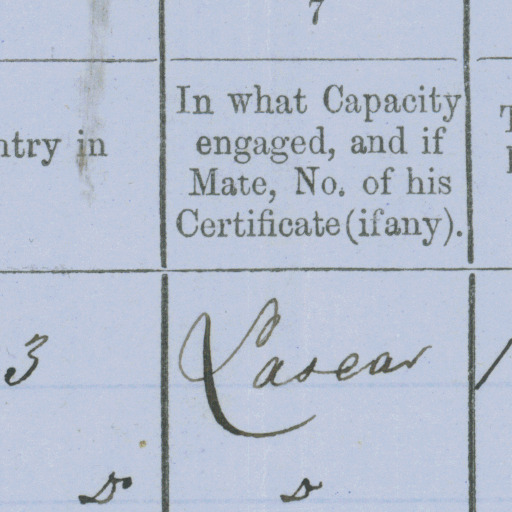 7
In what Capacity
engaged, and if
Mate, No. of his
Certificate (if any).
ntry in
3
Lascar
Do
D